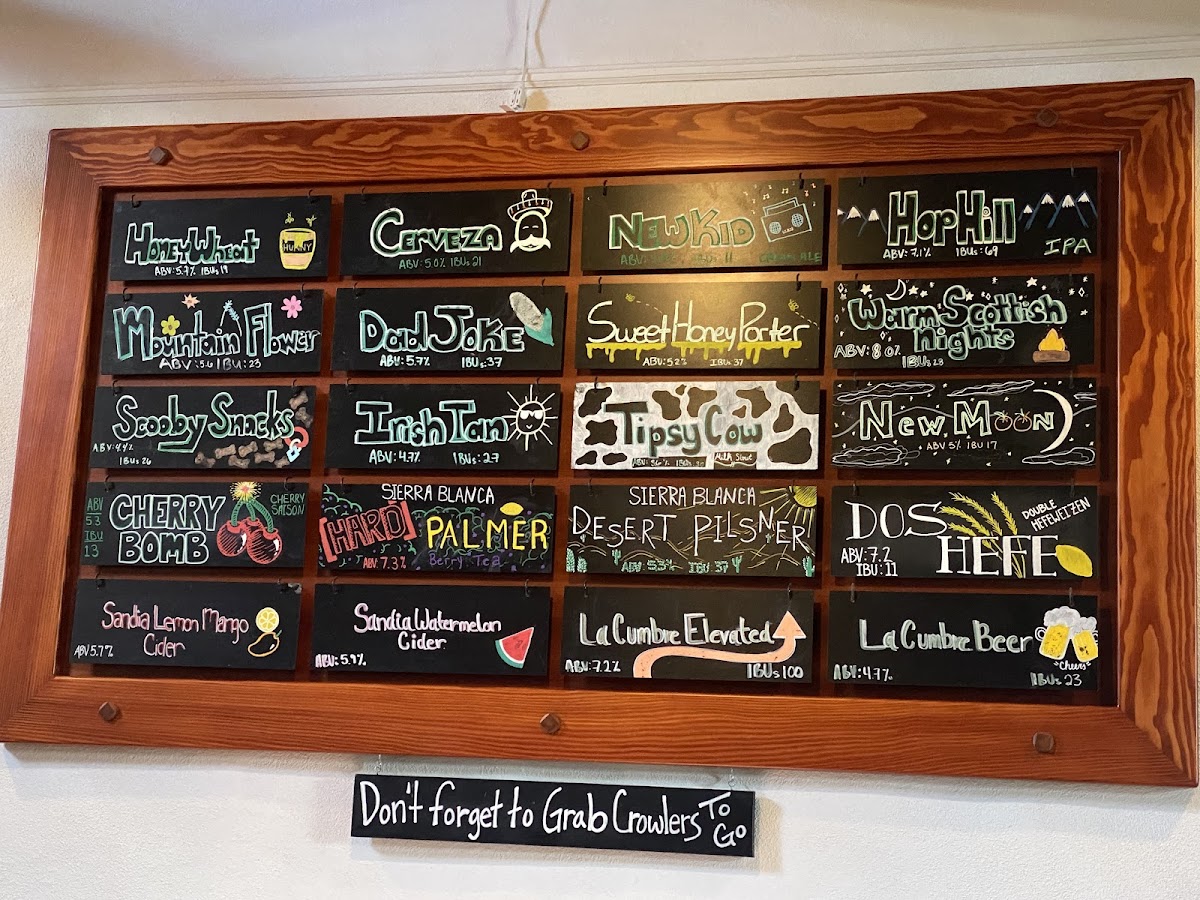 Honey Wheat
HUNNY
ABV: 5.7% IBUs 19
Cerveza
ABV: 5.0% IBUs 21
New Kid
ABV: IBUs 11 ALE
Hop Hill
ABV: 7.1% IBUs: 69
IPA
Mountain Flower
ABV: 5.6 IBU: 23
Dad Joke
ABV: 5.7% IBUs: 37
Sweet Honey Porter
ABV: 5.2% IBUs: 37
Warm Scottish
nights
ABV: 8.0%
IBUs 28
Scooby Snacks
ABV: 4.4%
IBUs 26
Irish Tan
ABV: 4.7% IBUs: 27
Tipsy Cow
ABV: 5.6% IBUs Milk Stout
New Moon
ABV 5% IBU 17
ABV
5.3
IBU
13
CHERRY
BOMB
CHERRY
SAISON
SIERRA BLANCA
[HARD] PALMER
ABV: 7.3% Berry Tea
SIERRA BLANCA
DESERT PILSNER
ABV: 5.3% IBU: 37
DOS
HEFE
DOUBLE
HEFEWEIZEN
ABV: 7.2
IBU: 11
Sandia Lemon Mango
Cider
ABV 5.7%
Sandia Watermelon
Cider
ABV: 5.9%
La Cumbre Elevated
ABV: 7.2% IBUs 100
La Cumbre Beer
"Cheers"
ABV: 4.7% IBUs 23
Don't forget to Grab Crowlers To
Go